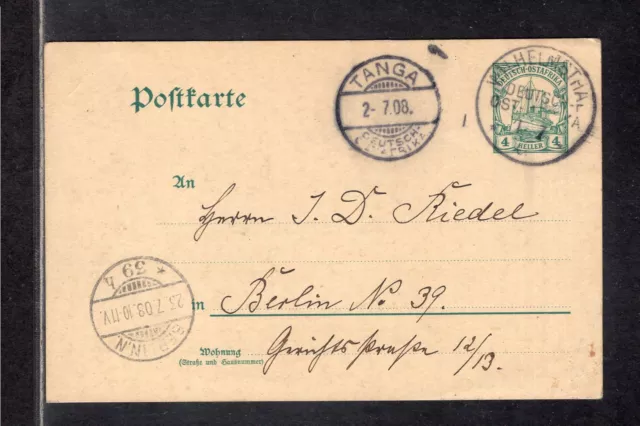 Postkarte
TANGA
2- 7.08.
DEUTSCH-
WILHELMSTHAL
DEUTSCH-OSTAFRIKA
4 HELLER 4
An
Herrn I. D. Riedel
in Berlin No 39.
Wohnung
(Straße und Hausnummer)
Gerichtsstraße 12/13.
BERLIN.N
23.7.08.10-11V.
* 39 h